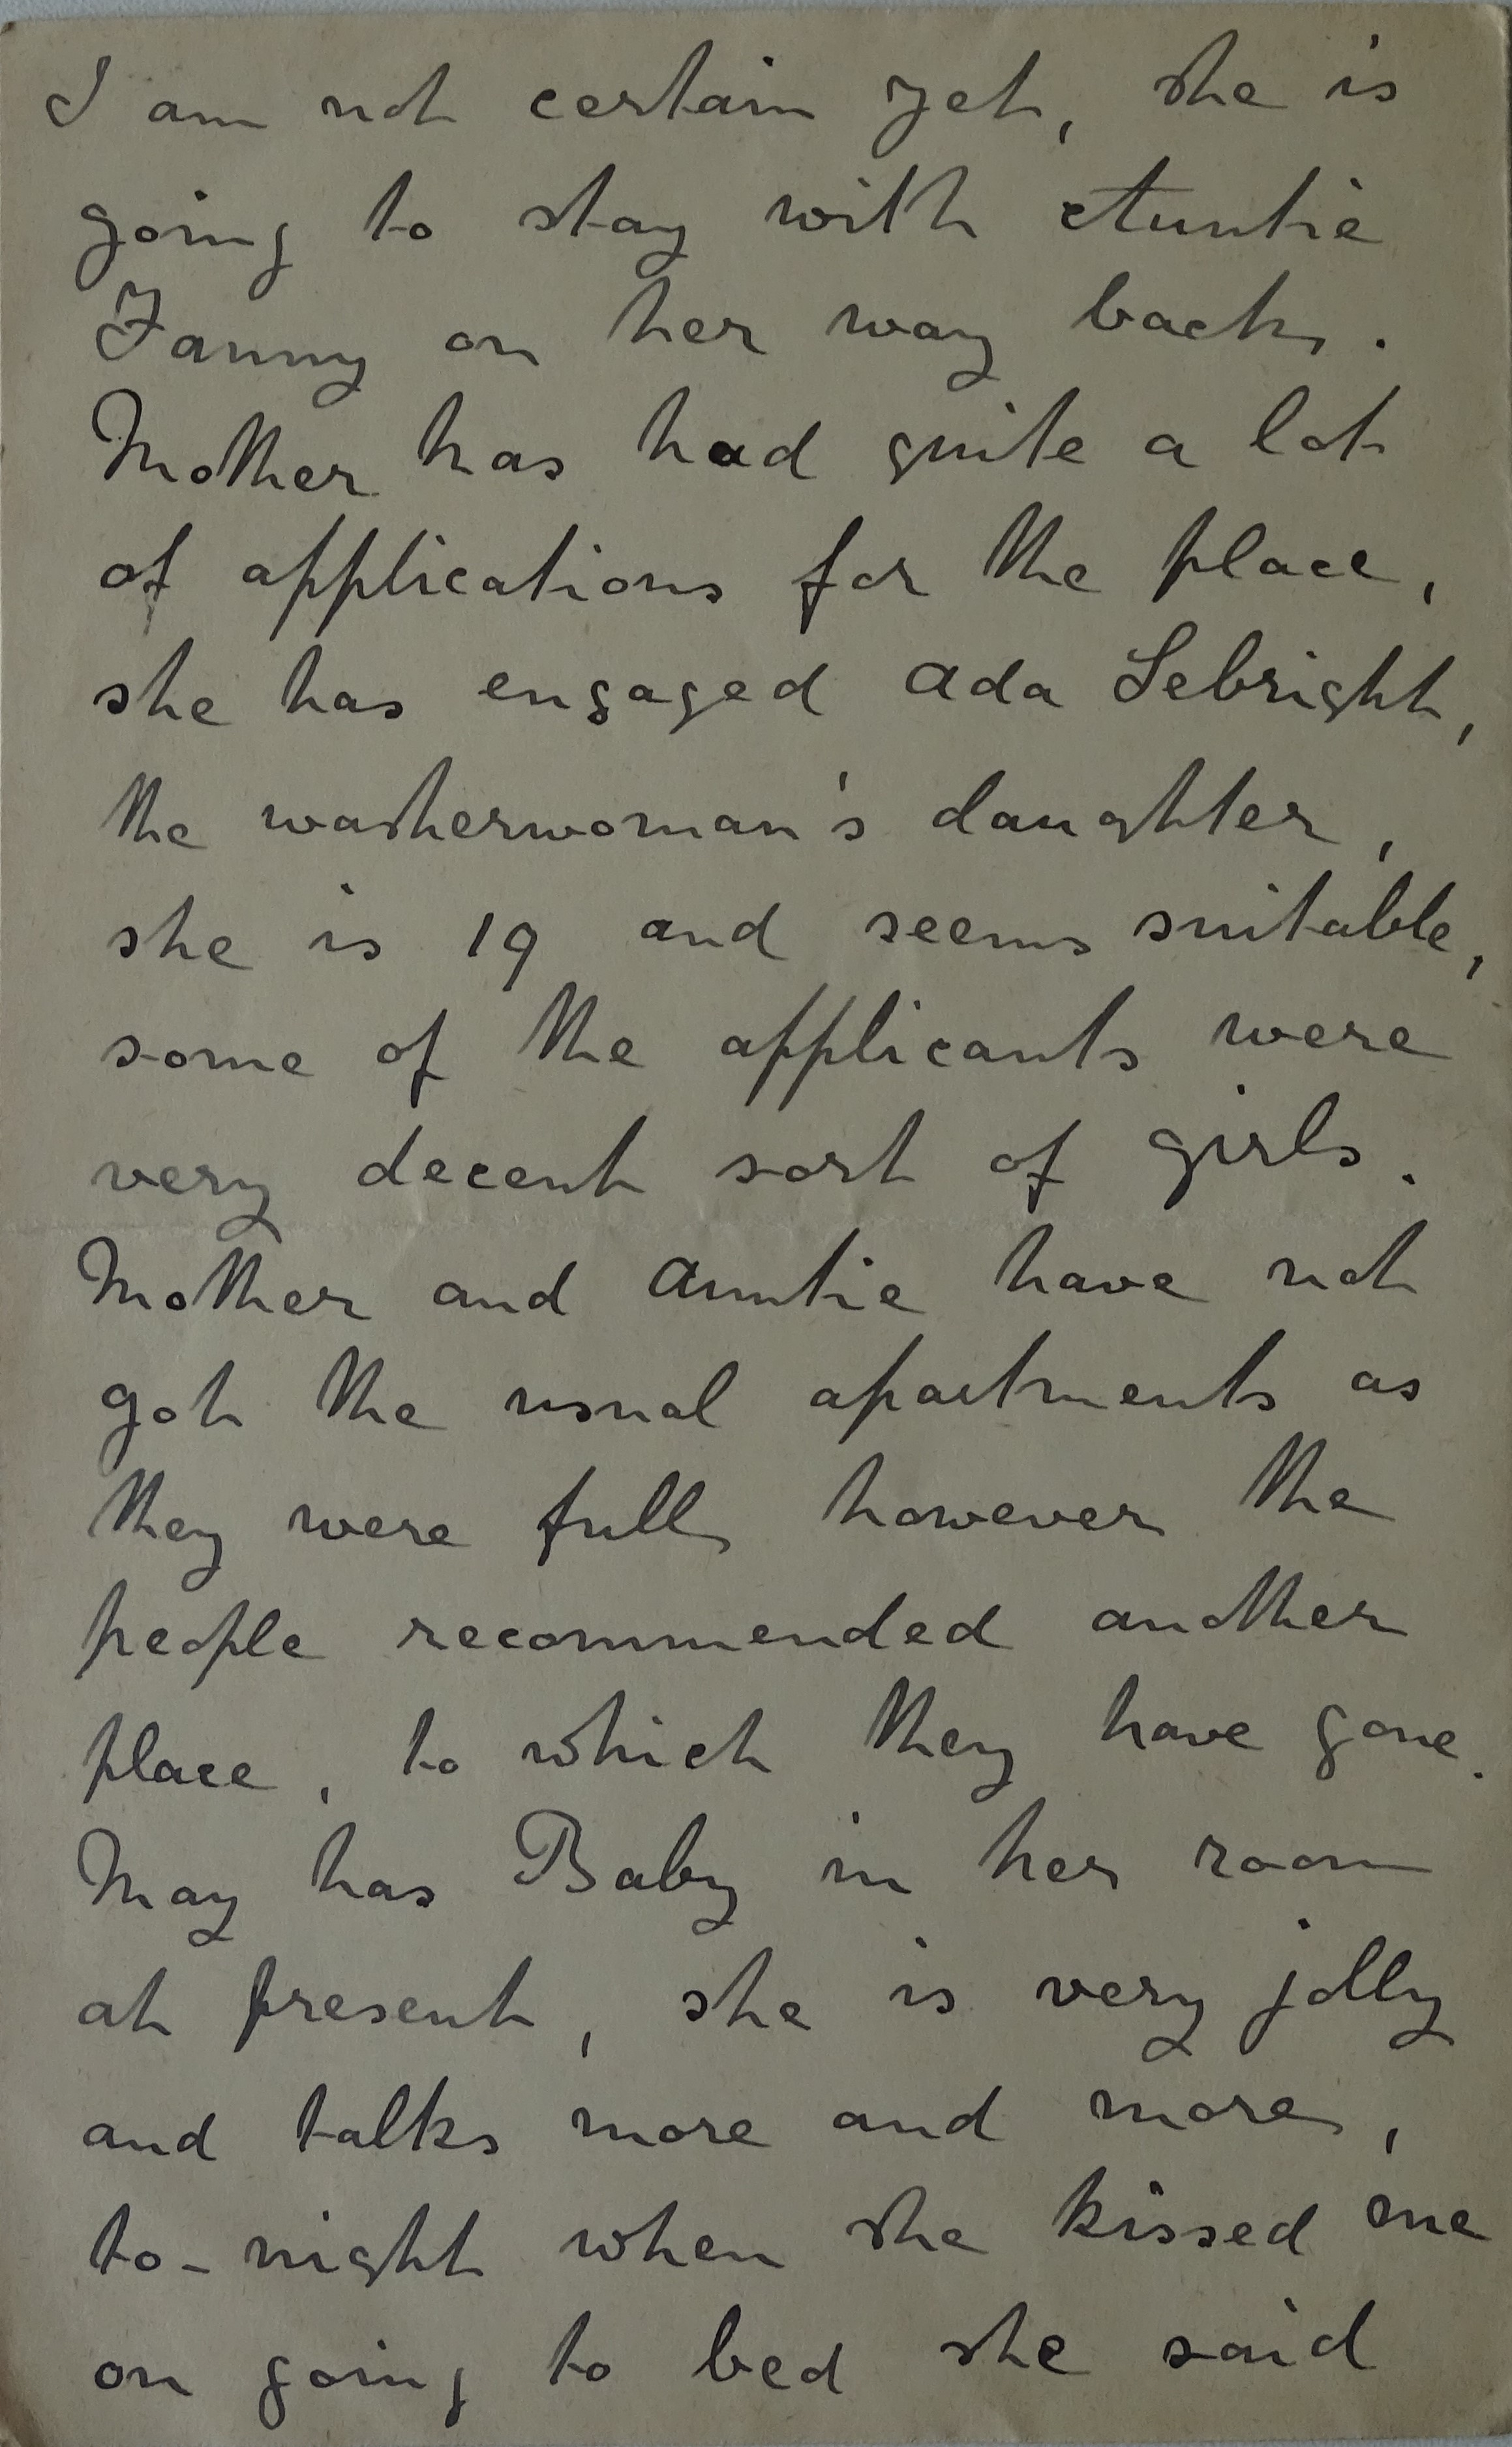 I am not certain yet, she is
going to stay with Auntie
Fanny on her way back.
Mother has had quite a lot
of applications for the place,
she has engaged Ada Sebright,
the washerwoman's daughter,
she is 19 and seems suitable,
some of the applicants were
very decent sort of girls.
Mother and Auntie have not
got the usual apartments as
they were full however the
people recommended another
place, to which they have gone.
May has Baby in her room
at present, she is very jolly
and talks more and more,
to-night when she kissed me
on going to bed she said